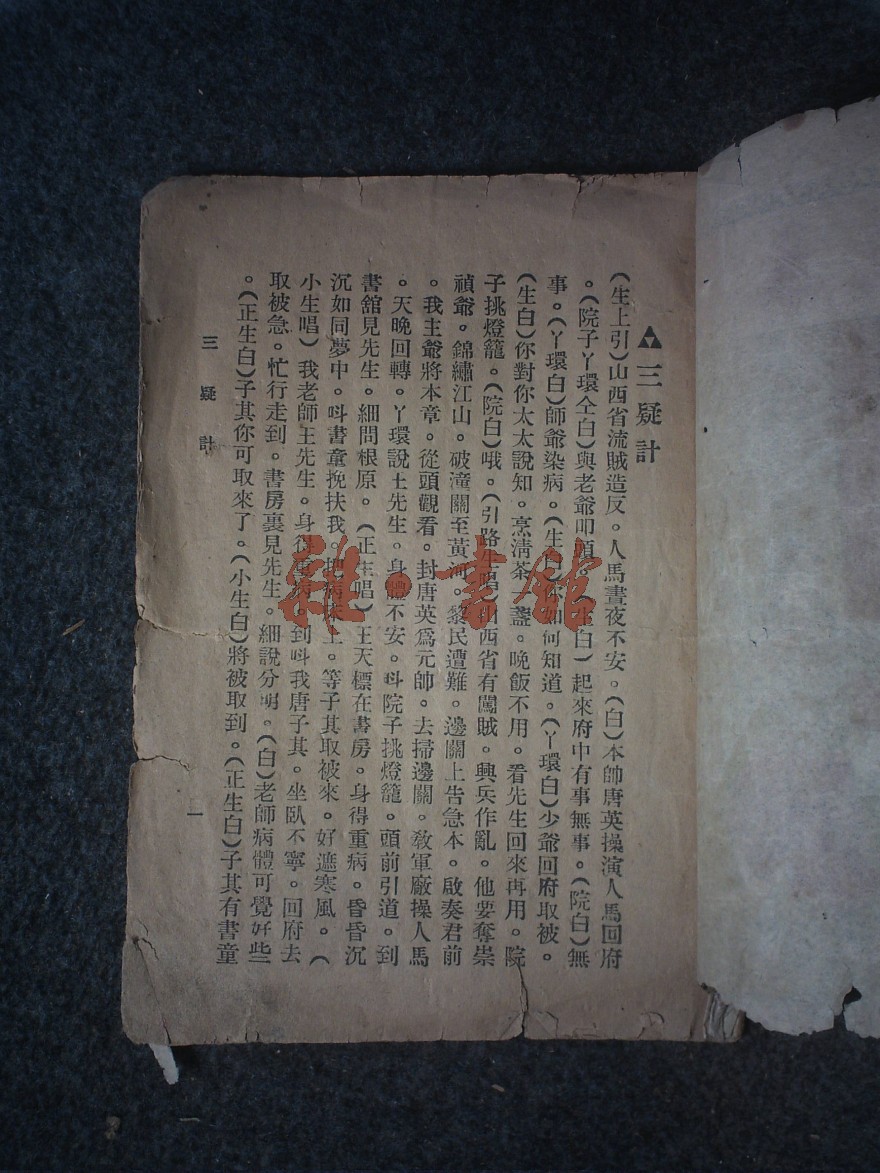 三疑計
(生上引)山西省流賊造反。人馬晝夜不安。(白)本帥唐英操演人馬回府
。(院子丫環仝白)與老爺叩頭。(生白)起來府中有事無事。(院白)無
事。(丫環白)師爺染病。(生白)你如何知道。(丫環白)少爺回府取被。
(生白)你對你太太說知。烹清茶一盞。晚飯不用。看先生回來再用。院
子挑燈籠。(院白)哦。(引路生唱)山西省有闖賊。興兵作亂。他要奪崇
禎爺。錦繡江山。破潼關至黃河。黎民遭難。邊關上告急本。啟奏君前
。我主爺將本章。從頭觀看。封唐英為元帥。去掃邊關。教軍廠操人馬
。天晚回轉。丫環說王先生。身體不安。呌院子挑燈籠。頭前引道。到
書舘見先生。細問根原。(正生唱)王天標在書房。身得重病。昏昏沉
沉如同夢中。呌書童挽扶我。把病床上。等子其取被來。好遮寒風。(
小生唱)我老師王先生。身得重病。到呌我唐子其。坐臥不寧。回府去
取被急。忙行走到。書房裏見先生。細說分明。(白)老師病體可覺好些
。(正生白)子其你可取來了。(小生白)將被取到。(正生白)子其有書童
三疑計
一
雜·書館